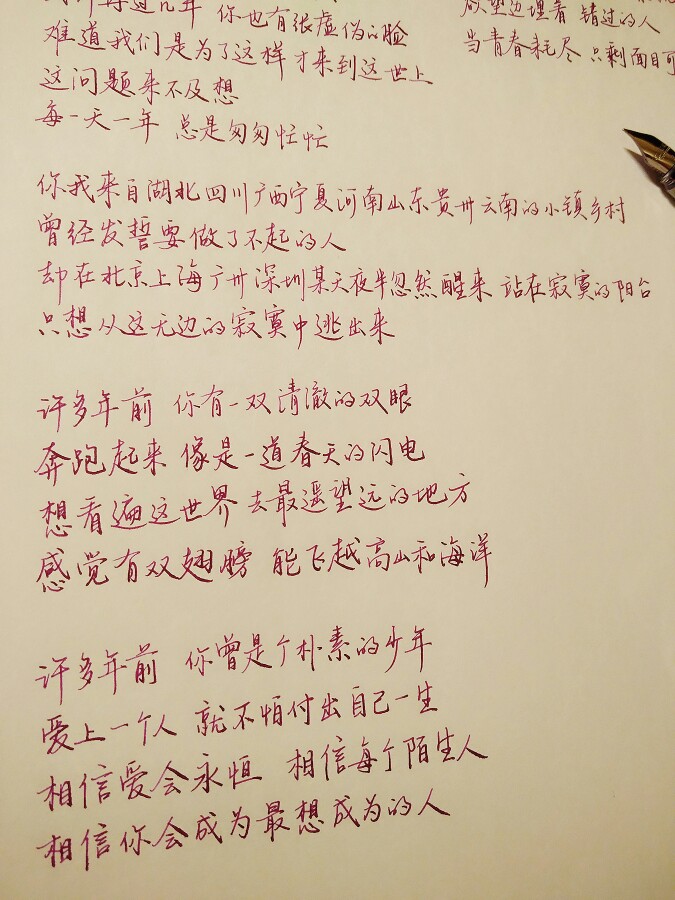 再过几年 你也有张虚伪的脸
难道我们是为了这样 才来到这世上
这问题来不及想
每一天一年 总是匆匆忙忙
你我来自湖北四川广西宁夏河南山东贵州云南的小镇乡村
曾经发誓要做了不起的人
却在北京上海广州深圳某天夜半忽然醒来 站在寂寞的阳台
只想从这无边的寂寞中逃出来
许多年前 你有一双清澈的双眼
奔跑起来 像是一道春天的闪电
想看遍这世界 去最遥望远的地方
感觉有双翅膀 能飞越高山和海洋
许多年前 你曾是个朴素的少年
爱上一个人 就不怕付出自己一生
相信爱会永恒 相信每个陌生人
相信你会成为最想成为的人
欲望边埋着 错过的人
当青春耗尽 只剩面目可